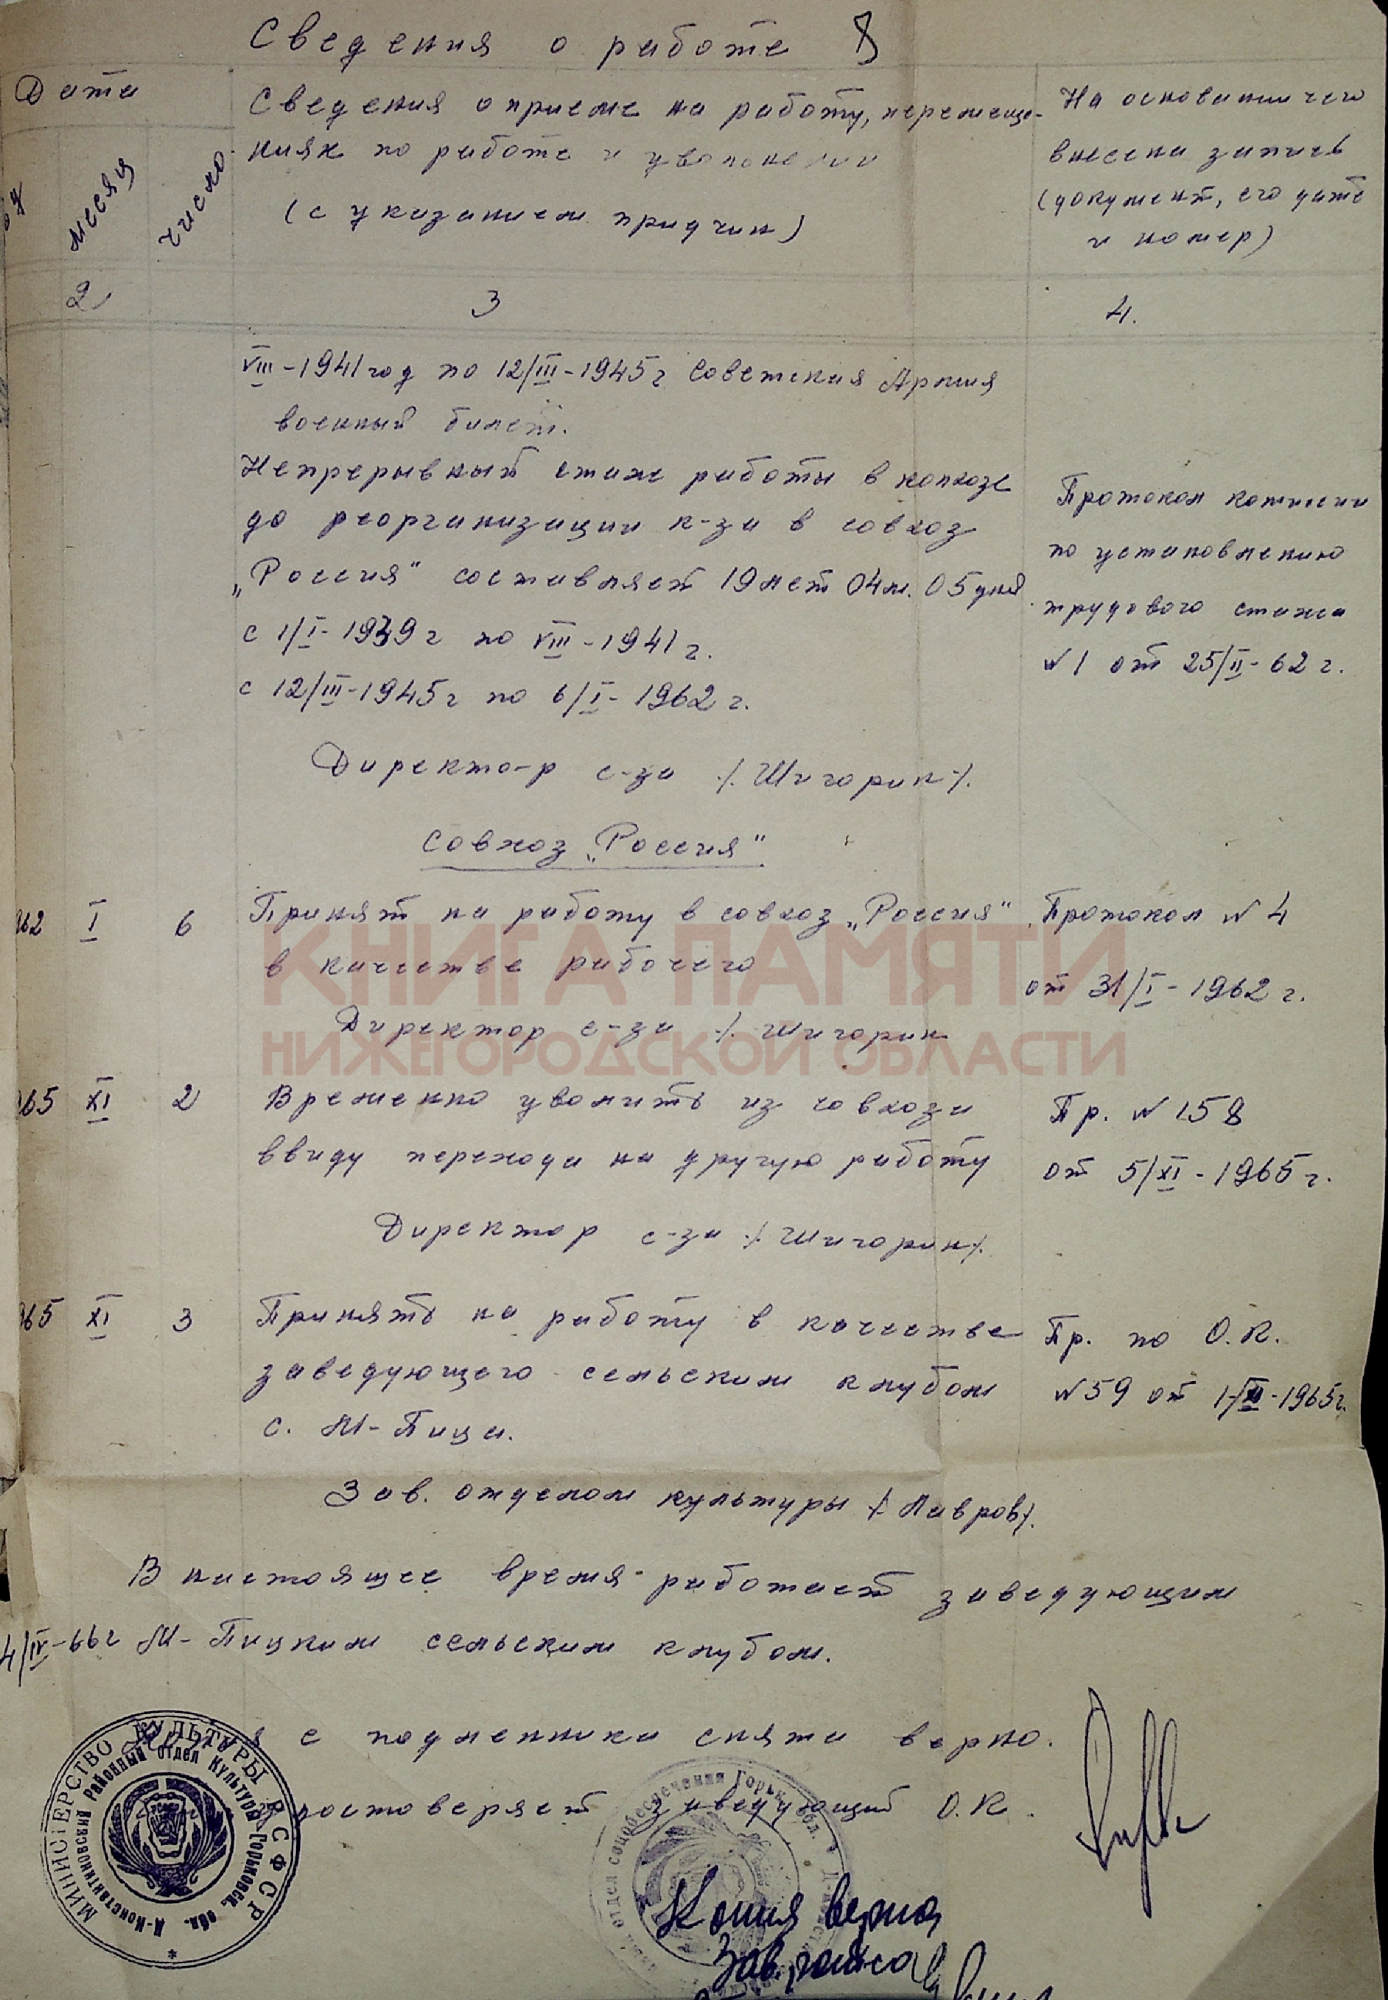 Сведения о работе 8
Дата
месяц
число
Сведения о приеме на работу, перемеще-
ниях по работе и увольнении
(с указанием придчин)
На основании чего
внесена запись
(документ, его дата
и номер)
2
3
4.
VIII-1941 год по 12/III-1945 г Советская Армия
военный билет.
Непрерывный стаж работы в колхозе
до реорганизации к-за в совхоз
„Россия" составляет 19 лет 04 м. 05 дней
с 1/I-1939 г по VIII-1941 г.
с 12/III-1945 г по 6/I-1962 г.
Протокол комиссии
по установлению
трудового стажа
№1 от 25/II-62 г.
Директор с-за /Шигорин/.
Совхоз „Россия"
962 I 6
Принят на работу в совхоз „Россия"
в качестве рабочего
Директор с-за /. Шигорин
Протокол №4
от 31/I-1962 г.
КНИГА ПАМЯТИ
НИЖЕГОРОДСКОЙ ОБЛАСТИ
965 XI 2
Временно уволить из совхоза
ввиду перехода на другую работу
Директор с-за /. Шигорин/.
Пр. №158
от 5/XI-1965 г.
965 XI 3
Принять на работу в качестве
заведующего сельским клубом
с. М-Пица.
Пр. по О.К.
№59 от 1/XI-1965 г.
Зав. отделом культуры /. Лавров/.
В настоящее время работает заведующим
4/IV-66 г М-Пицким сельским клубом.
Копия с подленника снята верно.
Удостоверяет заведующий О.К.
МИНИСТЕРСТВО КУЛЬТУРЫ РСФСР
Д-Константиновский районный отдел культуры Горьковск. обл.
отдел соцобеспечения Горьк. обл.
Копия верна
Зав.